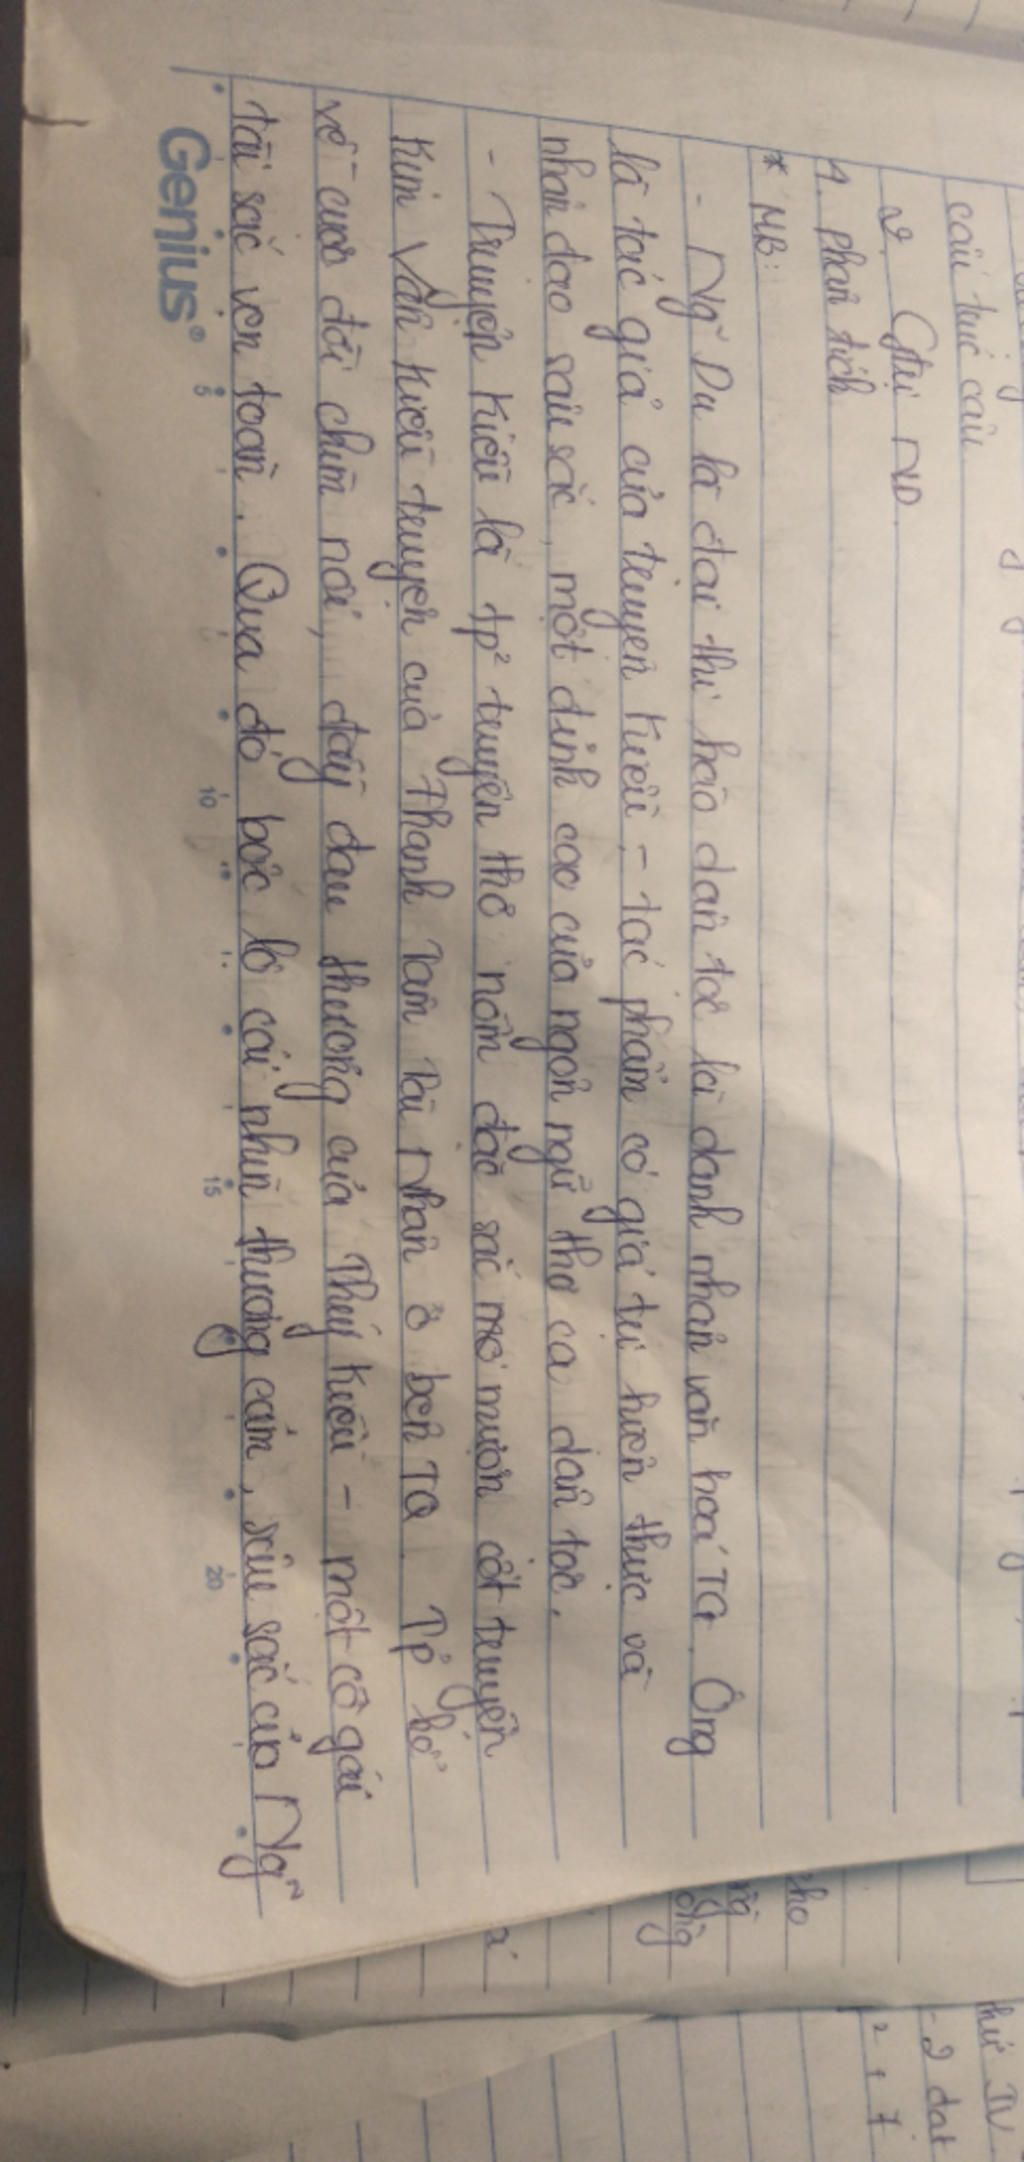 cấu trúc câu
2. Giá trị ND.
4. Phân tích
* MB:
- Ng~ Du là đại thi hào dân tộc là danh nhân văn hoá TG. Ông
là tác giả của truyện Kiều - tác phẩm có giá trị hiện thực và
nhân đạo sâu sắc, một đỉnh cao của ngôn ngữ thơ ca dân tộc.
- Truyện Kiều là tp² truyện thơ nôm đặc sắc mở mượn cốt truyện
Kim Vân Kiều truyện của Thanh Tâm Tài Nhân ở bên TQ. Tp² kể
về cuộc đời chìm nổi, đầy đau thương của Thuý Kiều - một cô gái
tài sắc vẹn toàn. Qua đó bộc lộ cái nhìn thương cảm, sâu sắc của Ng~
Genius
5
10
15
20
cho
ông
thứ IV
- 2 đạt